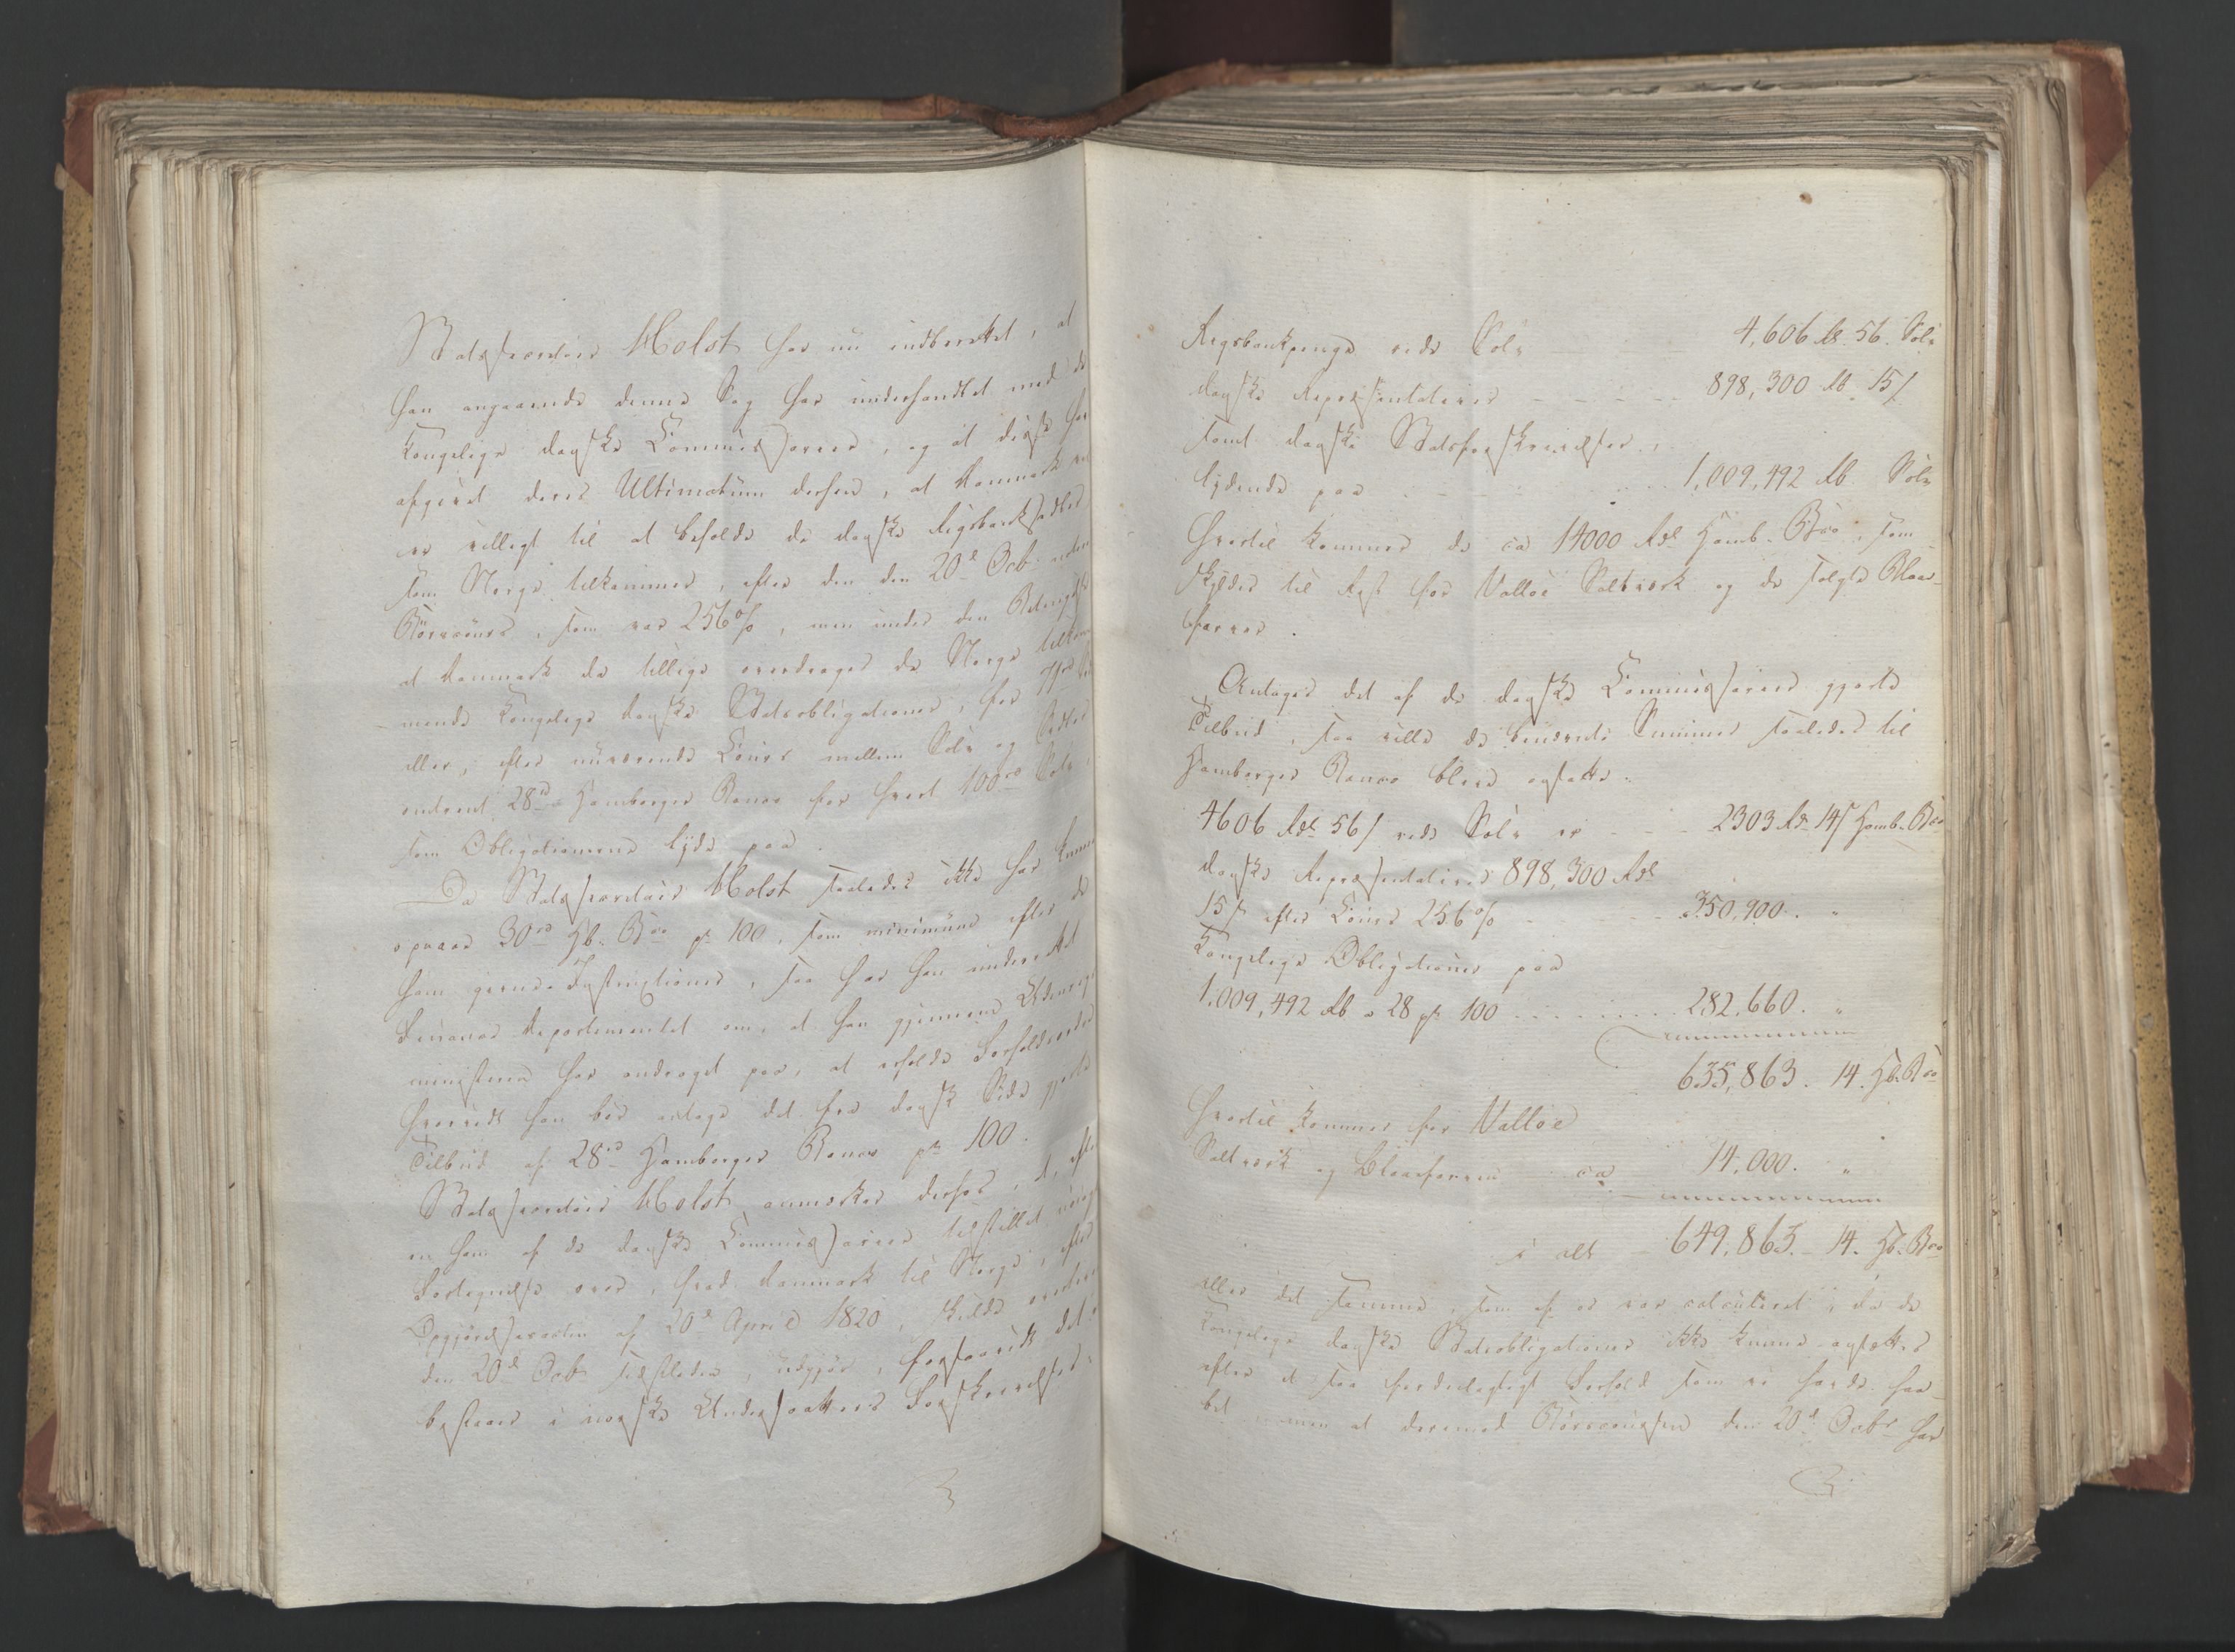 Statssecretair Holst har nu indberettet, at
han angaaende denne Sag har underhandlet med de
Kongelige danske Commissairer, og at disse har
afgivet deres Ultimatum derhen, at Danmark vel
er villigt til at beholde de danske Rigsbanksedler
som Norge tilkommer, efter den den 20de Octb.
Börscours, som var 256 %, men under den Betingelse
at Danmark da tillige overdrages de Norge tilkom-
mende Kongelige danske Statsobligationer, for
eller, efter nuværende Cours mellem Sølv og Sedler
omtrent 28rd Hamborger Banco for hvert 100rd Sølv,
som Obligationerne lyde paa.
Da Statssecretair Holst saaledes ikke har kunnet
opnaae 30rd Hb. Bco pr 100, som minimum efter de
ham givne Instructioner, saa har han underrettet
Finances Departementet om, at han gjennem Udenrigs
ministeren har andraget paa, at erholde Forholdsordre
hvorvidt han bör antage det fra dansk Side gjorte
Tilbud af 28rd Hamborger Banco pr 100.
Statssecretair Holst anmærker derhos, at, efter
en ham af de danske Commissairer tilstillet
Fortegnelse over, hvad Danmark til Norge, efter
Opgjørelsesacten af 20de April 1820, skulde
den 20de Octb. sidstleden, udgjør, foruden det
bestaaer i norske Undersaatters Forskrivelser,
Rigsbankpenge rede Sølv 4,606 Rd. 56. Sølv
danske Repræsentativer - - - - - 898,300 Rb. 15 /
samt danske Statsforskrivelser,
lydende paa . . . . . 1,009,492 Rb. Sølv
Hvortil kommer de ca 14000 Rdl Hamb. Bco, som
skyldes til Rest for Valløe Saltværk og de solgte Blaae-
farver.
Antages det af de danske Commissairer gjorte
Tilbud, saa ville de benævnte Summer saaledes til
Hamborger Banco blive ansatte:
4606 Rdl 56 / rede Sølv er - - - 2303 Rd. 14 / Hamb. Bco
danske Repræsentativer 898,300 Rdl
15 / efter Cours 256 % - - - - 350,900. "
Kongelige Obligationer paa
1,009,492 Rb a 28 pr 100 . . . . . . 282,660. "
635,863. 14. Hb. Bco
Hvortil kommer for Valløe
Saltværk og Blaafarven ca 14,000. "
i alt - 649,863. - 14. Hb. Bco
eller det samme, som af os var calculeret, da de
Kongelige danske Statsobligationer ikke kunne ansættes
efter et saa fordeelagtigt Forhold som vi havde haa-
bet, men at derimod Börscoursen den 20de Octbr har